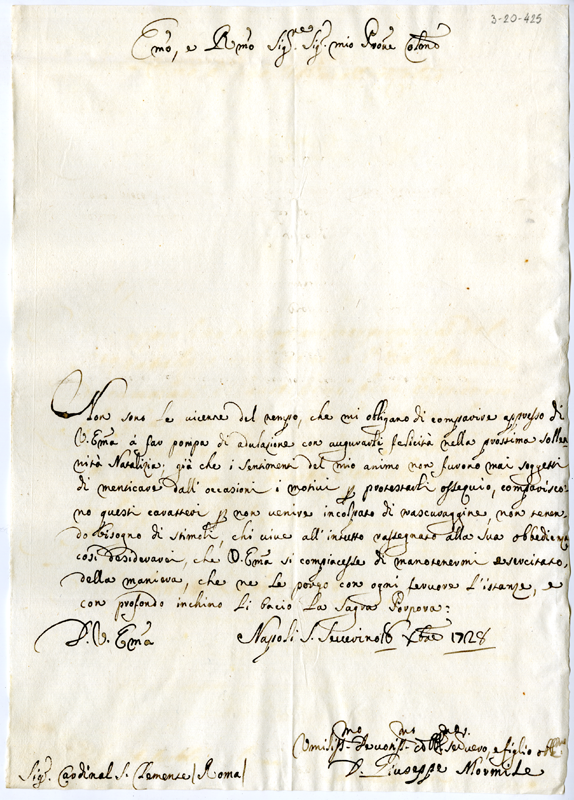 3-20-425
Emo, e Rmo Sigre. Sigr. mio Prone Colmo
Non sono le vicende del tempo, che mi obligano di comparire appresso di
V. Emã à far pompa di adulazione con augurarli felicità nella prossima Solle-
nità Natalizia, già che i sentimenti del mio animo non furono mai soggetti
di mendicare dall'occasioni i motivi per protestarli ossequio, comparisco-
no questi caratteri per non venire incolpato di trascuraggine, non tenen-
do bisogno di stimoli, chi vive all'intutto rassegnato alla Sua obbedienza
così desiderarei, che V. Emã si compiacesse di mantenermi esercitato,
della maniera, che ne le porgo con ogni fervore l'istanze, e
con profondo inchino li bacio la Sagra Porpora:
D. V. Emã Napoli S. Severino 18 Xbre 1728
Umilismo Devotismo obbmo Servero, e figlio
D. Giuseppe Mormile
Sigr. Cardinal S. Clemente / Roma /